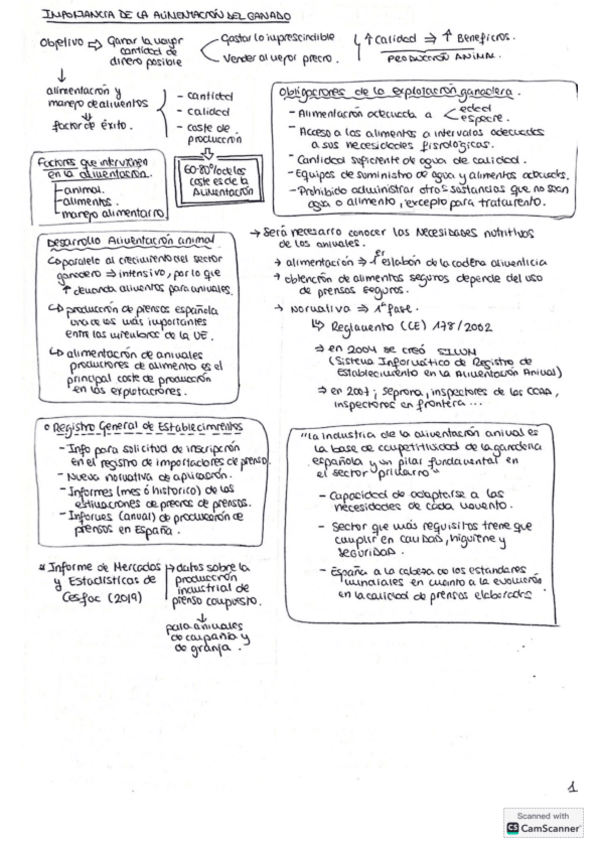 IMPORTANCIA DE LA ALIMENTACIÓN DEL GANADO
Objetivo ⇒ Ganar la mayor cantidad de dinero posible
Gastar lo imprescindible
Vender al mejor precio.
↑ Calidad ⇒ ↑ Beneficios.
PRODUCCIÓN ANIMAL.
↓
alimentación y
manejo de alimentos
↓
factor de éxito.
- cantidad
- calidad
- coste de
producción
60-80% de los
costes es de la
Alimentación
Factores que intervienen
en la alimentación.
animal.
alimentos.
manejo alimentario
Obligaciones de la explotación ganadera.
- Alimentación adecuada a
edad
especie.
- Acceso a los alimentos a intervalos adecuados
a sus necesidades fisiológicas.
- Cantidad suficiente de agua de calidad.
- Equipos de suministro de agua y alimentos adecuads.
- Prohibido administrar otras sustancias que no sean
agua o alimento, excepto para tratamiento.
Desarrollo Alimentación animal
↳ paralelo al crecimiento del sector
ganadero ⇒ intensivo, por lo que
↑ demanda alimentos para animales.
↳ producción de piensos española
una de las más importantes
entre los miembros de la UE.
↳ alimentación de animales
productores de alimento es el
principal coste de producción
en las explotaciones.
→ Será necesario conocer las necesidades nutritivas
de los animales.
→ alimentación ⇒ 1er eslabón de la cadena alimenticia
→ obtención de alimentos seguros depende del uso
de piensos seguros.
→ Normativa ⇒ 1ª fase.
↳ Reglamento (CE) 178/2002
⇒ en 2004 se creó SILUM
(Sistema Informático de Registro de
Establecimiento en la Alimentación Animal)
⇒ en 2007; seprona, inspectores de las CCAA,
inspectores en frontera...
○ Registro General de Establecimientos
- Info para solicitud de inscripción
en el registro de importadores de pienso.
- Nueva normativa de aplicación.
- Informes (mes ó histórico) de las
estimaciones de precios de piensos.
- Informes (anual) de producción de
piensos en España.
* Informe de Mercados
y Estadísticas de
Cesfac (2019)
→ datos sobre la
producción
industrial de
pienso compuesto.
↓
para animales
de compañía y
de granja.
"La industria de la alimentación animal es
la base de competitividad de la ganadería
española y un pilar fundamental en
el sector primario"
- Capacidad de adaptarse a las
necesidades de cada momento.
- Sector que más requisitos tiene que
cumplir en calidad, higiene y
seguridad.
- España a la cabeza de los estándares
mundiales en cuanto a la evolución
en la calidad de piensos elaborados
1
Scanned with
CS CamScanner